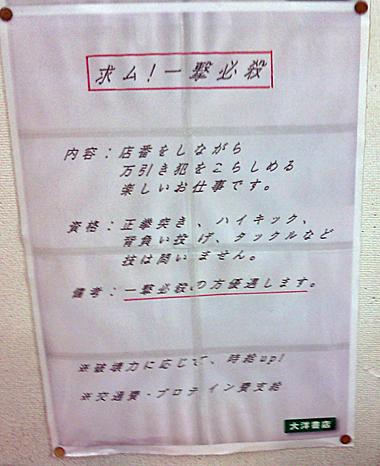 求ム!一撃必殺
内容：店番をしながら
万引き犯をこらしめる
楽しいお仕事です。
資格：正拳突き、ハイキック、
背負い投げ、タックルなど
技は問いません。
備考：一撃必殺の方優遇します。
※破壊力に応じて、時給up!
※交通費・プロテイン費支給
大洋書店